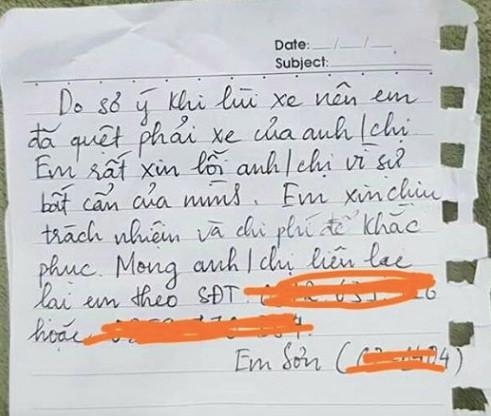 Date: __/__/__
Subject:
Do sơ ý khi lùi xe nên em
đã quẹt phải xe của anh/chị
Em rất xin lỗi anh/chị vì sự
bất cẩn của mình. Em xin chịu
trách nhiệm và chi phí để khắc
phục. Mong anh/chị liên lạc
lại em theo SĐT.
hoặc
Em Sơn (